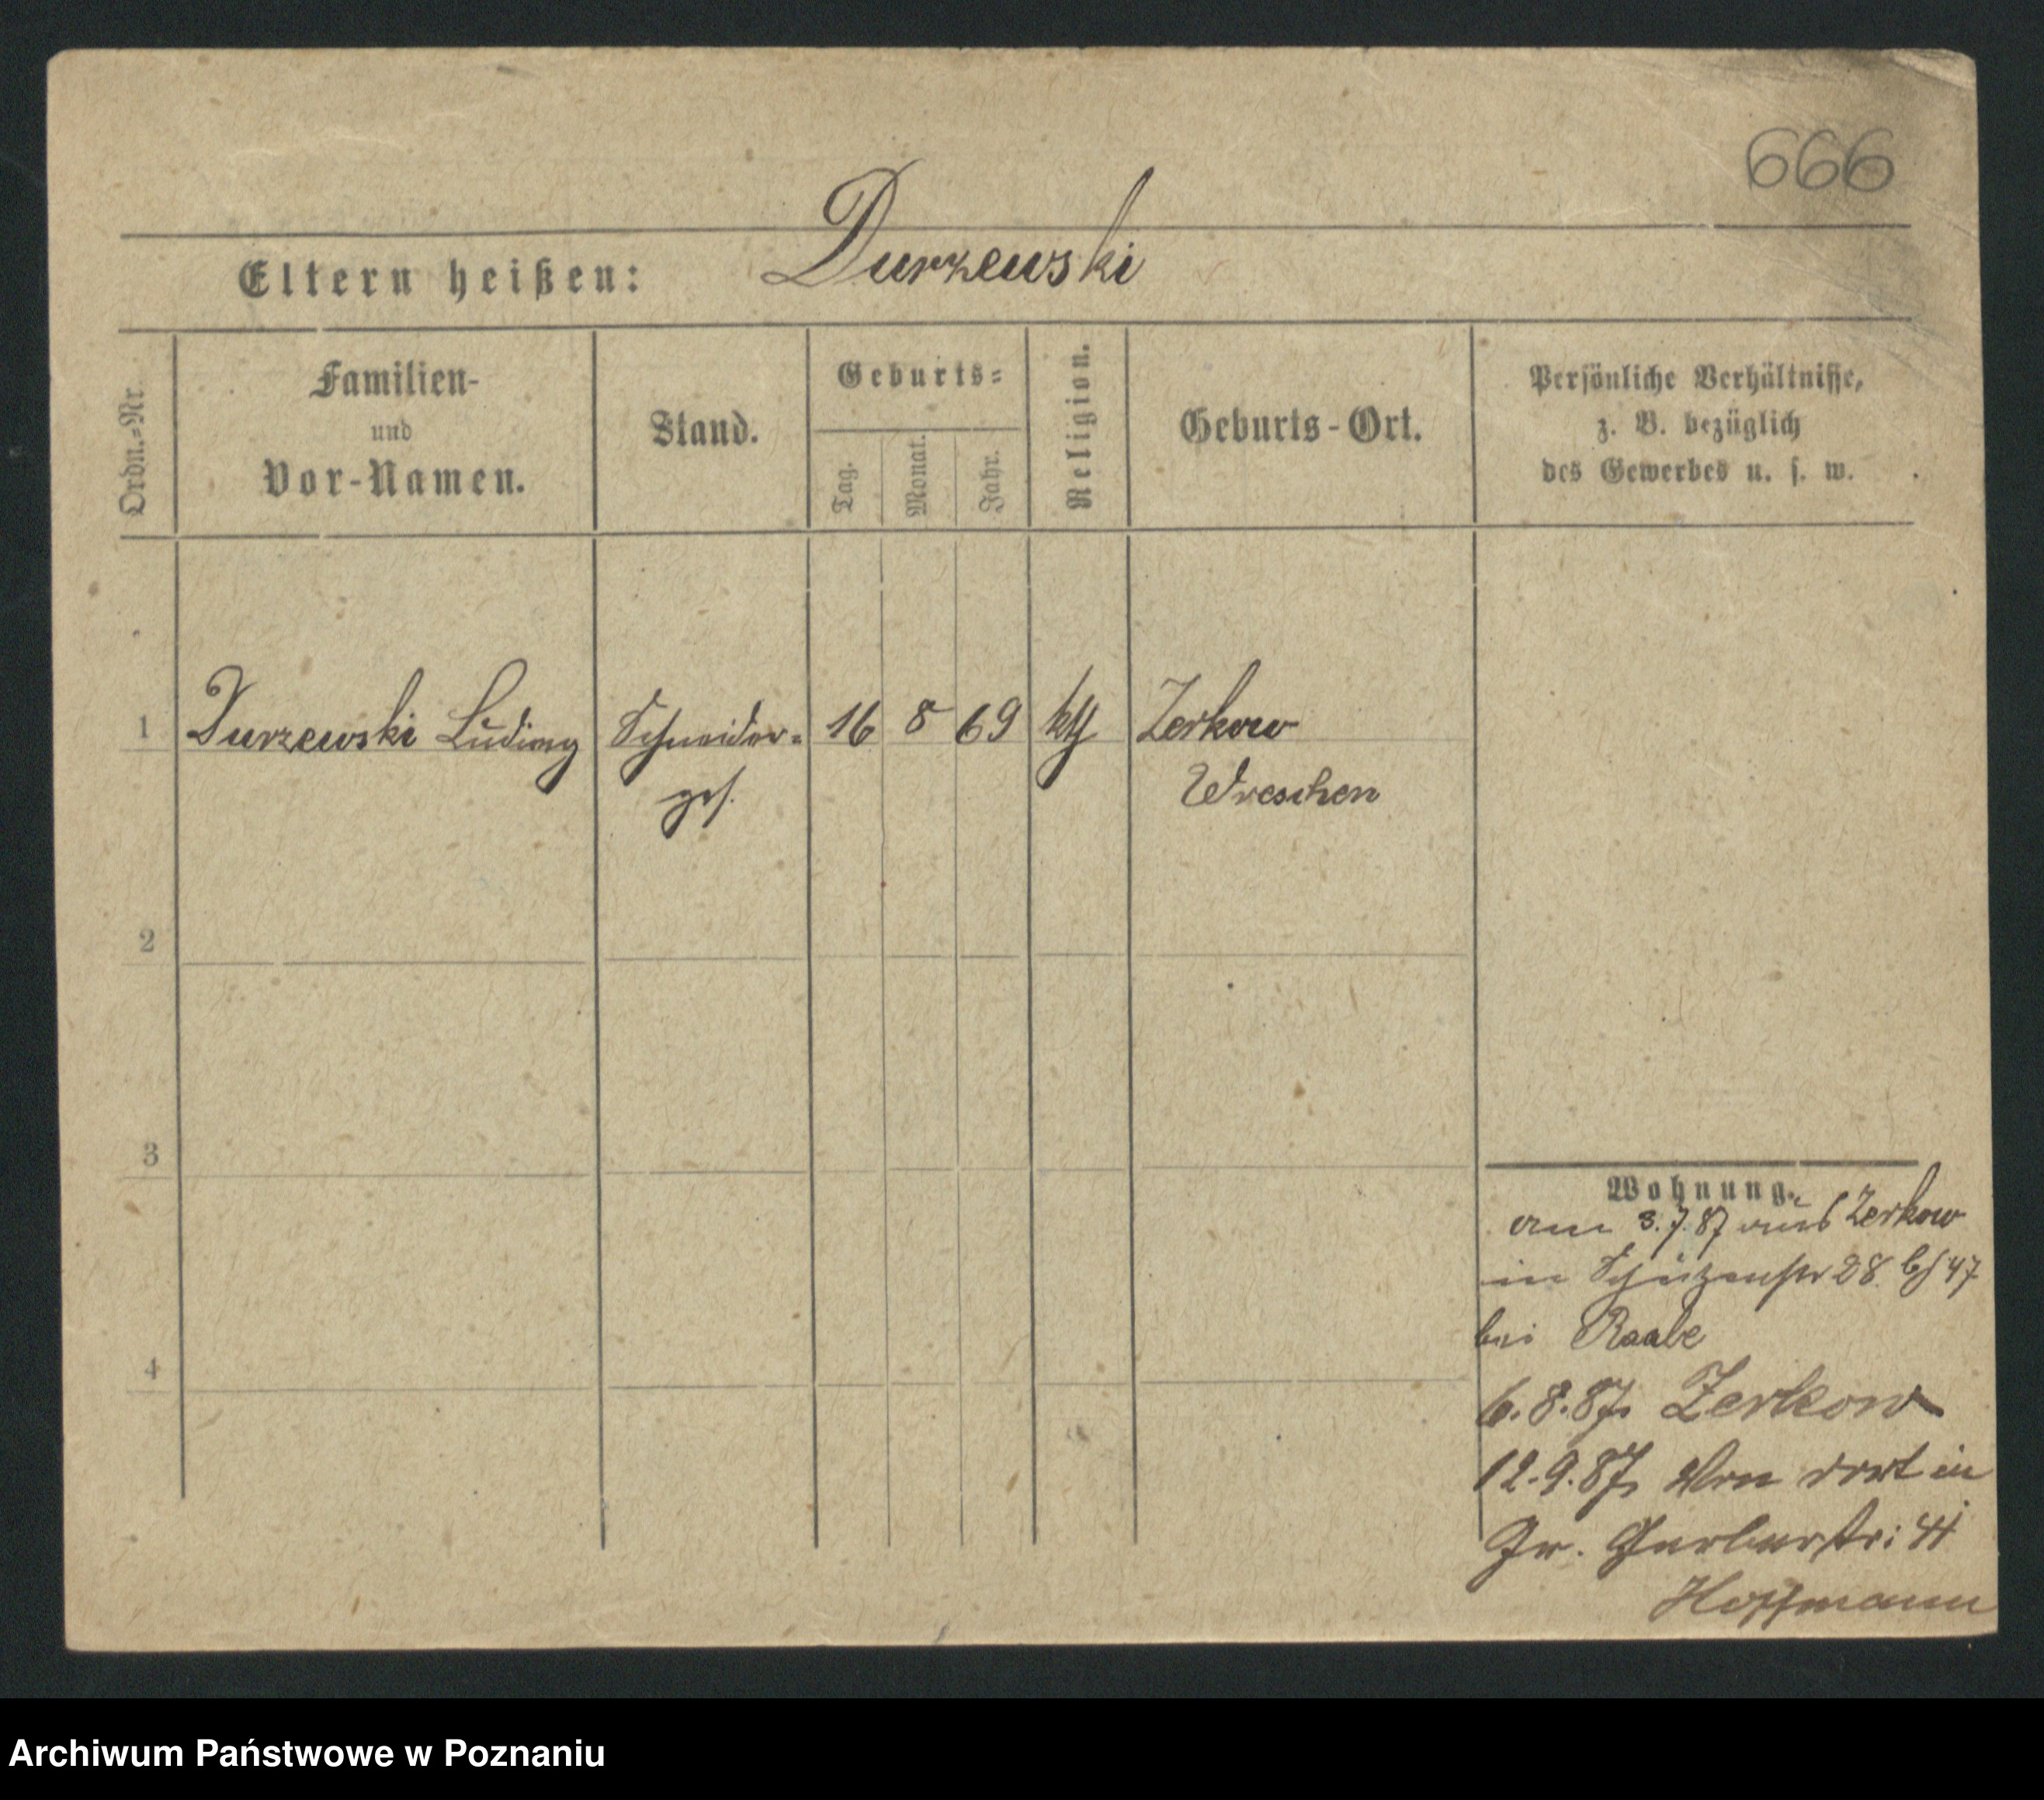 666
Durzewski
Eltern heißen:
Ordn.-Nr.
Familien-
und
Vor-Namen.
Stand.
Geburts-
Tag.
Monat.
Jahr.
Religion.
Geburts-Ort.
Persönliche Verhältnisse,
z. B. bezüglich
des Gewerbes u. s. w.
1 Durzewski Ludwig Schneider- 16 8 69 kth Zerkow
ges. Wreschen
2
3
4
Wohnung.
am 3.7.87 aus Zerkow
in Schützenstr 28 47
bei Raabe
6.8.87 Zerkow
12.9.87 Von dort in
Gr. Gerberstr: 41
Hoffmann
Archiwum Państwowe w Poznaniu